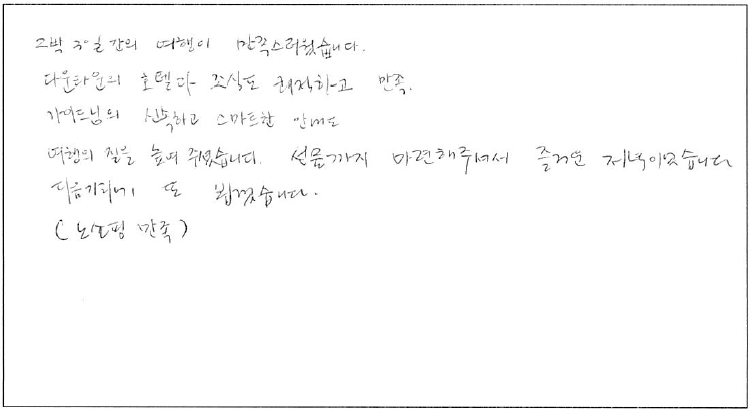 2박 3일간의 여행이 만족스러웠습니다.
다운타운의 호텔과 조식도 쾌적하고 만족.
가이드님의 신속하고 스마트한 안내도
여행의 질을 높여 주셨습니다. 선물까지 마련해주셔서 즐거운 저녁이었습니다
다음기회에 또 뵙겠습니다.
(노쇼핑 만족)